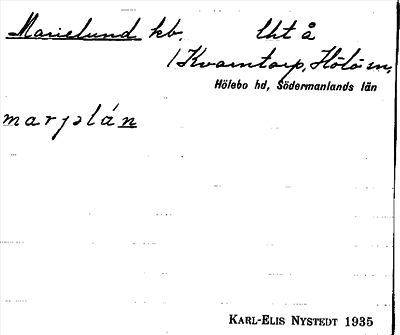 Marielund kb. lht å
/Kvarntorp, Hölö sn,
Hölebo hd, Södermanlands län
marjelán
KARL-ELIS NYSTEDT 1935